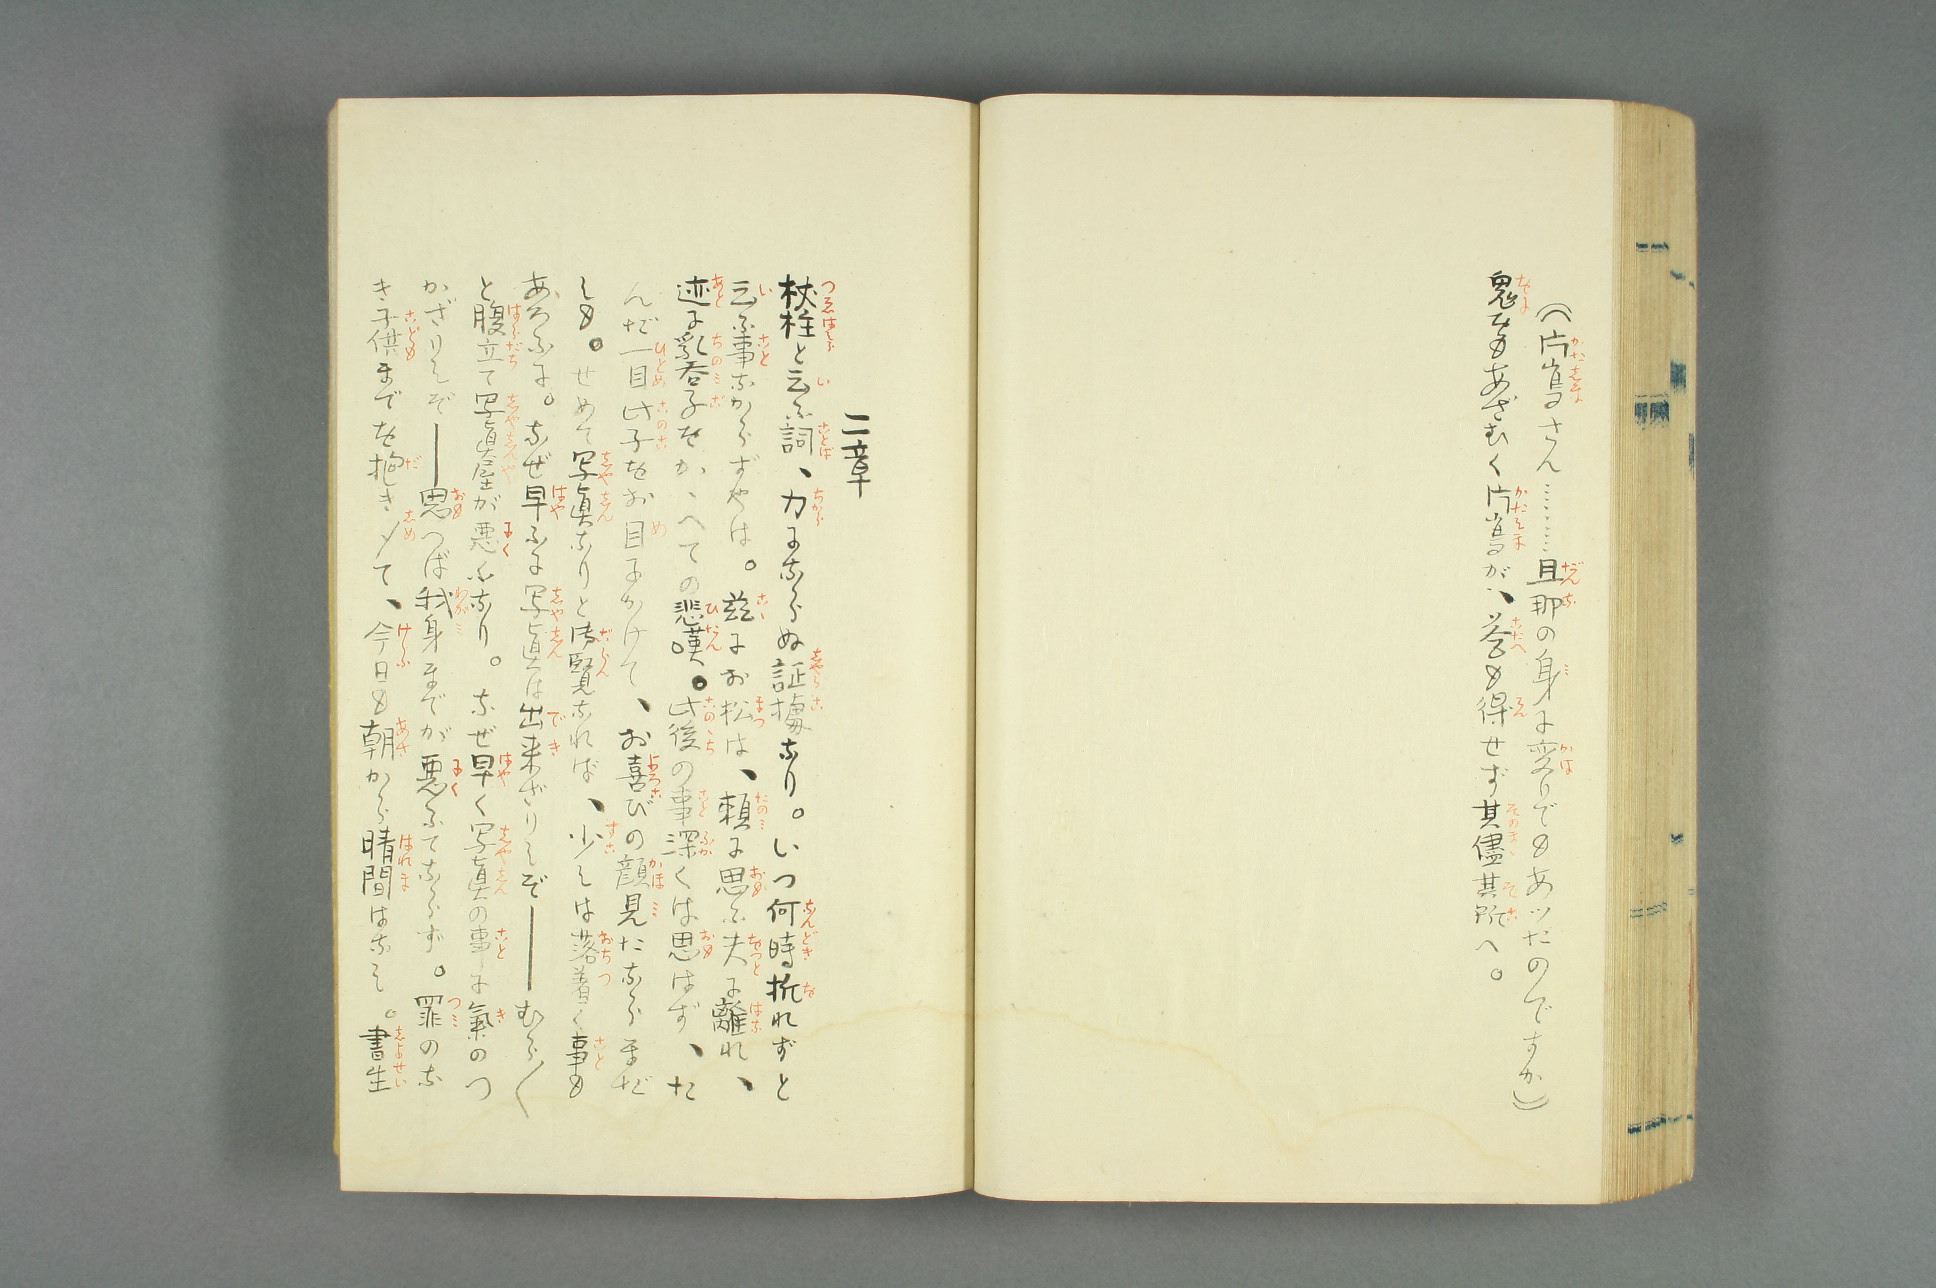 （片嶌さん…………旦那の身に変りでもあッたのですか）
鬼をもあざむく片嶌が、答も得せず其儘其所へ。
二章
杖柱と云ふ詞、力にならぬ証拠なり。いつ何時挫れずと
云ふ事なからずやは。茲にお松は、頼に思ふ夫に離れ、
迹に乳呑子をかゝへての悲嘆。此後の事深くは思はず、た
んだ一目此子をお目にかけて、お喜びの顔見たならまだ
しも。せめて写真なりと御覧なれば、少しは落着く事も
あろふに。なぜ早ふに写真は出来ざりしぞ――むら〳〵
と腹立て写真屋が悪くなり。なぜ早く写真の事に氣のつ
かざりしぞ――思つば我身までが悪ふてならず。罪のな
き子供までを抱き〆て、今日も朝から晴間はなし。書生